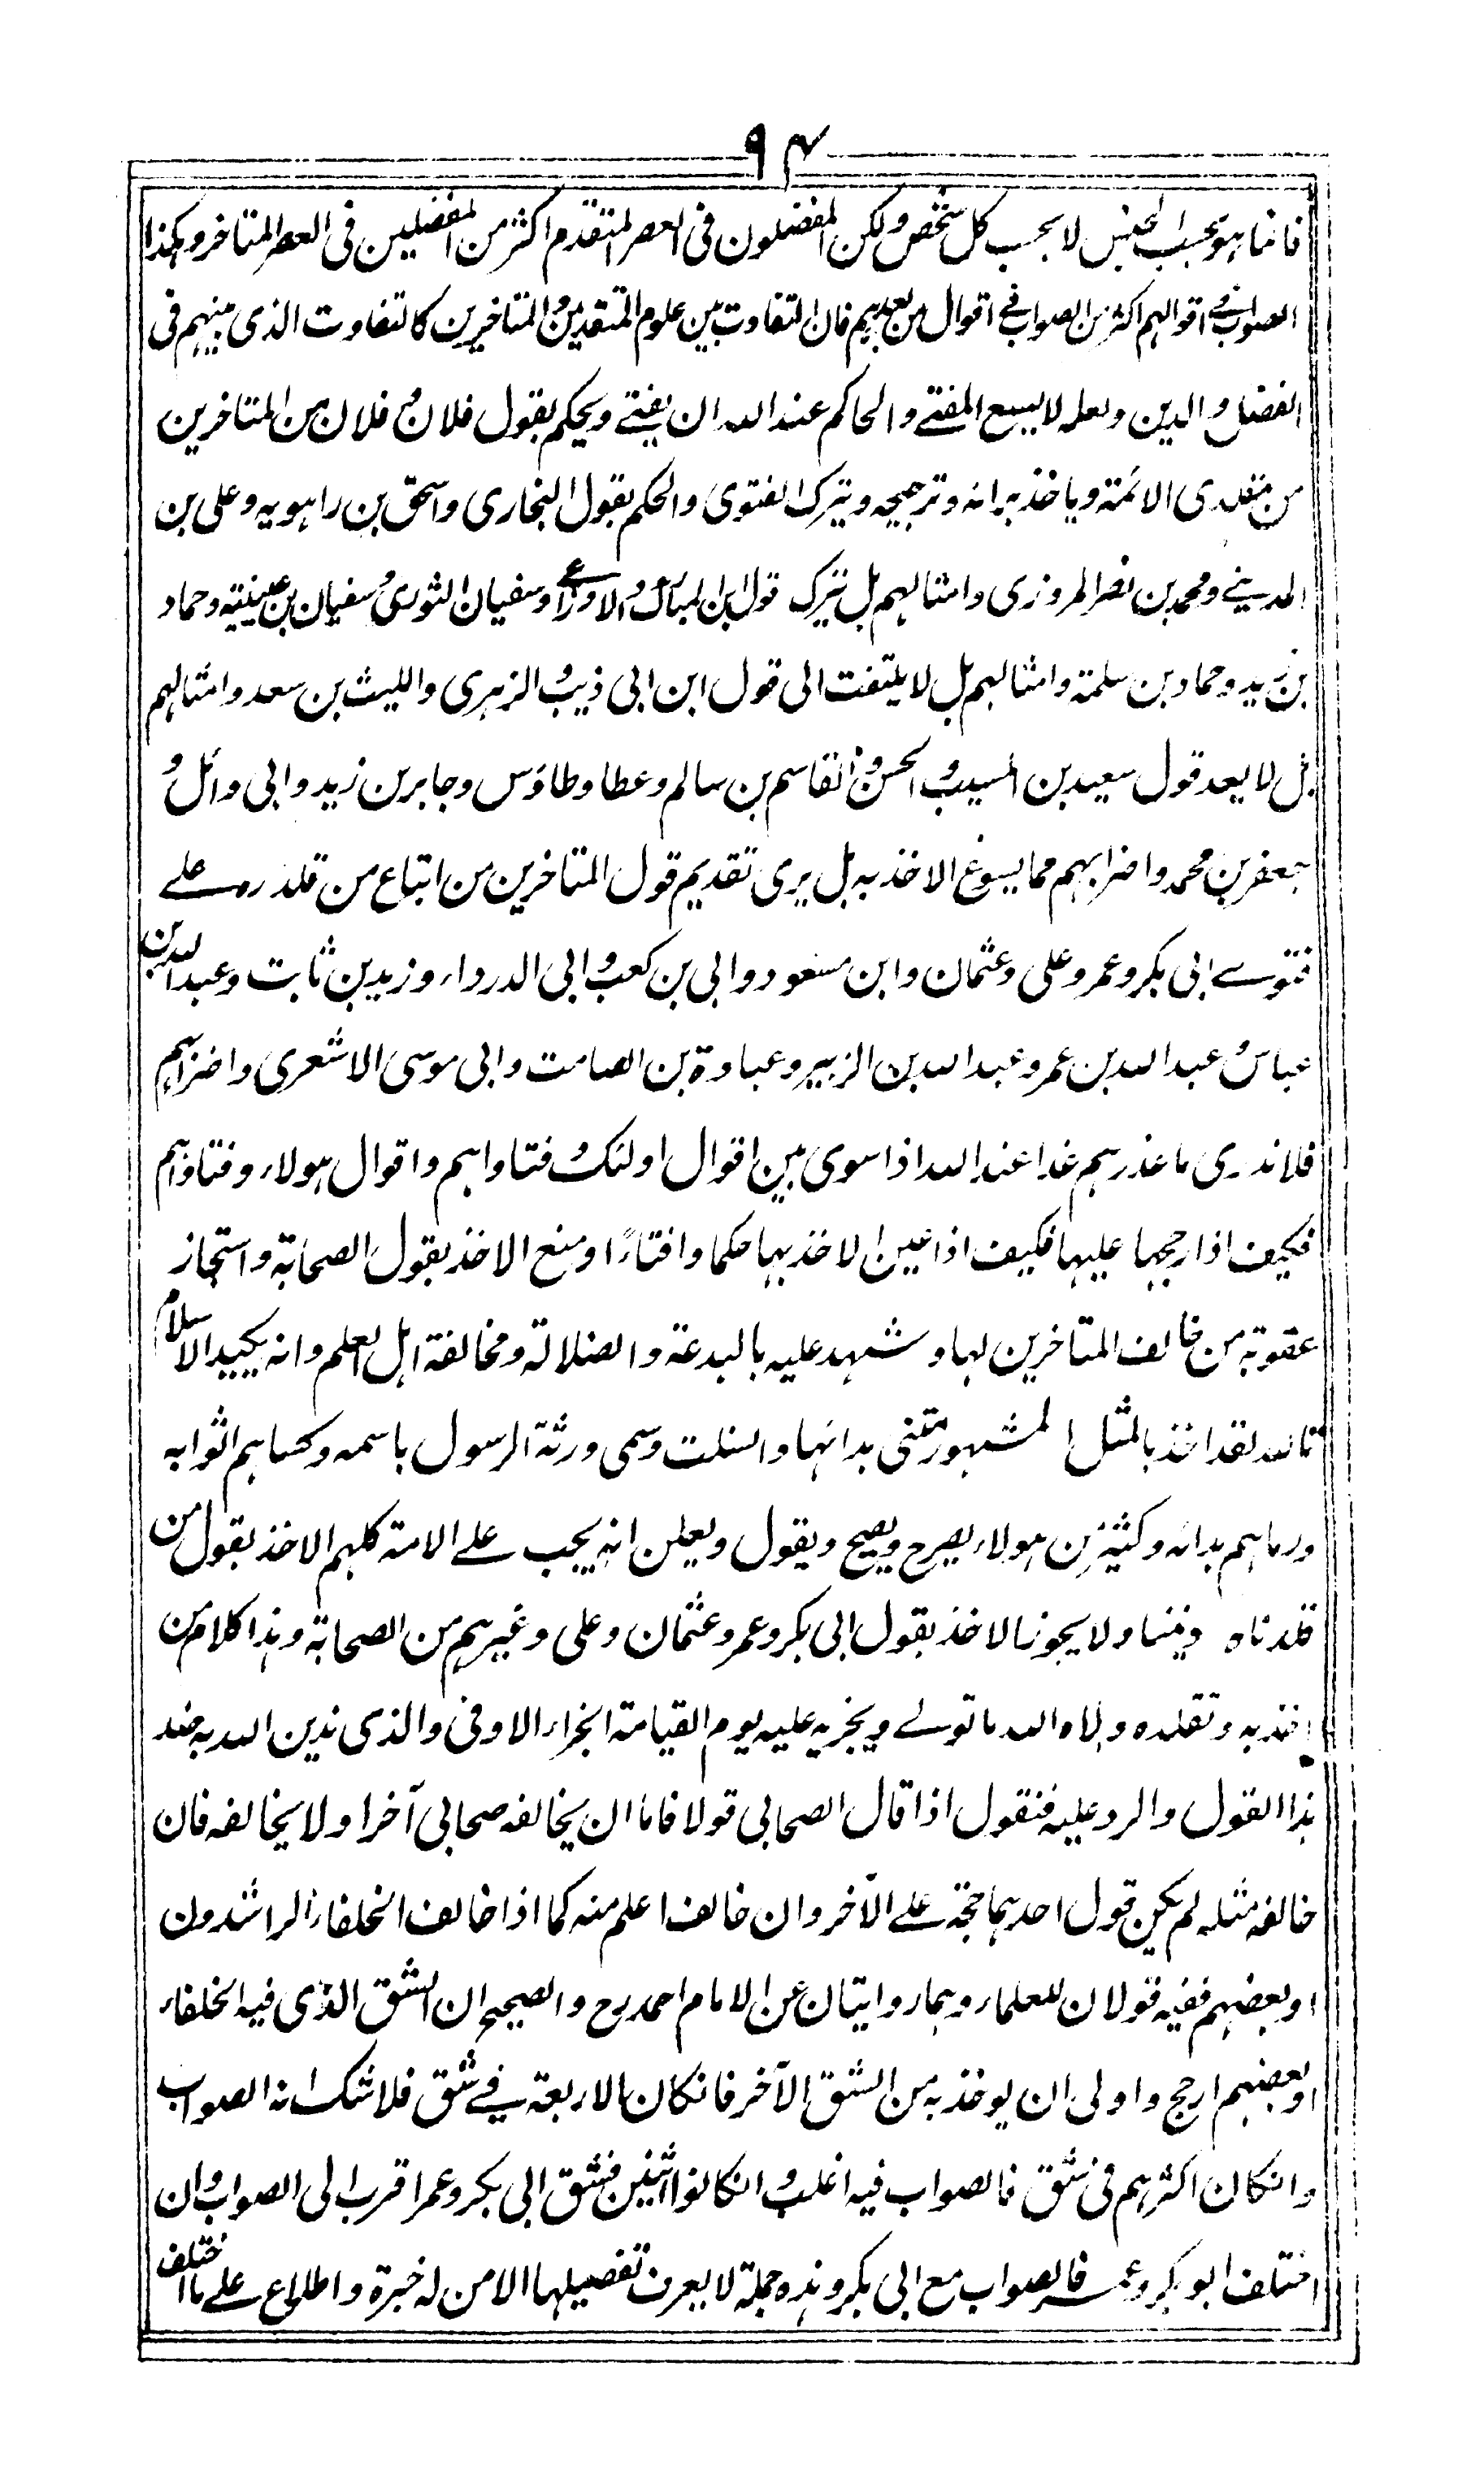 ٩٤
فانما هو بحسب الجنس لا بحسب كل شخص ولكن المفضلون فى العصر المتقدم اكثر من المفضلين فى العصر المتاخر وهكذا
الصواب فى اقوالهم اكثر من الصواب فى اقوال من بعدهم فان التفاوت بين علوم المتقدمين و المتاخرين كالتفاوت الذى بينهم فى
الفضل و الدين ولعله لا يسع المفتے والحاكم عند الله ان يفتے ويحكم بقول فلان و فلان من المتاخرين
من مقلدى الائمة وياخذ برائه وترجيحه ويترك الفتوى والحكم بقول البخارى واسحق بن راهويه وعلى بن
المدينے ومحمد بن نصر المروزى وامثالهم بل يترك قول ابن المبارك و الاوزاعے وسفيان الثورى و سفيان بن عيينة وحماد
بن زيد وحماد بن سلمة وامثالهم بل لا يلتفت الى قول ابن ابى ذيب و الزهرى والليث بن سعد وامثالهم
بل لا يعد قول سعيد بن المسيب و الحسن و القاسم بن سالم وعطا وطاؤس وجابر بن زيد وابى وائل و
جعفر بن محمد واضرابهم مما يسوغ الاخذ به بل يرى تقديم قول المتاخرين من اتباع من قلده علے
فتوے ابى بكر وعمر وعلى وعثمان وابن مسعود وابى بن كعب و ابى الدرداء وزيد بن ثابت وعبد الله بن
عباس و عبد الله بن عمر وعبد الله بن الزبير وعبادة بن الصامت وابى موسى الاشعرى واضرابهم
فلا ندرى ما عذرهم غدا عند الله اذا سوى بين اقوال اولئك و فتاواهم واقوال هولاء وفتاواهم
فكيف اذا رجحها عليها فكيف اذا عين الاخذ بها حكما وافتاءً ومنع الاخذ بقول الصحابة واستجاز
عقوبة من خالف المتاخرين لها وشهد عليه بالبدعة والضلالة ومخالفة اهل العلم وانه يكيد الاسلام
تالله لقد اخذ بالمثل المشهور رمتنى بدائها وانسلت وسمى ورثة الرسول باسمه وكساهم اثوابه
ورماهم بدائه وكثير من هولاء يصرح ويصيح ويقول ويعلن انه يجب علے الامة كلهم الاخذ بقول من
قلدناه ديننا ولا يجوز الاخذ بقول ابى بكر وعمر وعثمان وعلى وغيرهم من الصحابة وهذا كلام من
اخذ به وتقلده ولاه الله ما تولے ويجزيه عليه يوم القيامة الجزاء الاوفى والذى ندين الله به ضد
هذا القول والرد عليه فنقول اذا قال الصحابى قولا فاما ان يخالفه صحابى آخر اولا يخالفه فان
خالفه مثله لم يكن قول احدهما حجة علے الآخر وان خالف اعلم منه كما اذا خالف الخلفاء الراشدون
او بعضهم ففيه قولان للعلماء وهما روايتان عن الامام احمد رح والصحيح ان الشق الذى فيه الخلفاء
او بعضهم ارجح واولى ان يوخذ به من الشق الآخر فانكان الاربعة فے شق فلا شك انه الصواب
وانكان اكثرهم فى شق فالصواب فيه اغلب و انكانوا اثنين فشق ابى بكر وعمر اقرب الى الصواب و ان
اختلف ابو بكر وعمر فالصواب مع ابى بكر وهذه جملة لا يعرف تفصيلها الا من له خبرة واطلاع علے ما اختلف